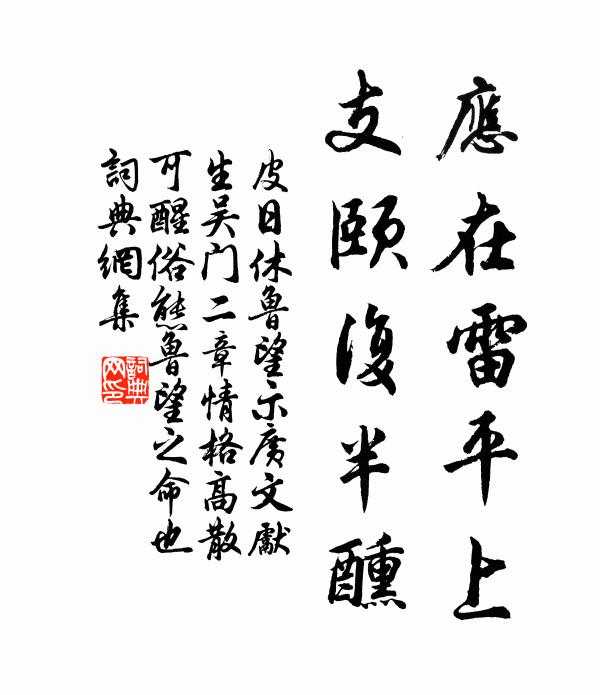 應在雷平上
支頤復半醺
皮日休魯望示廣文獻
生吴门二章情格高散
可醒俗態魯望之命也
詞典網集